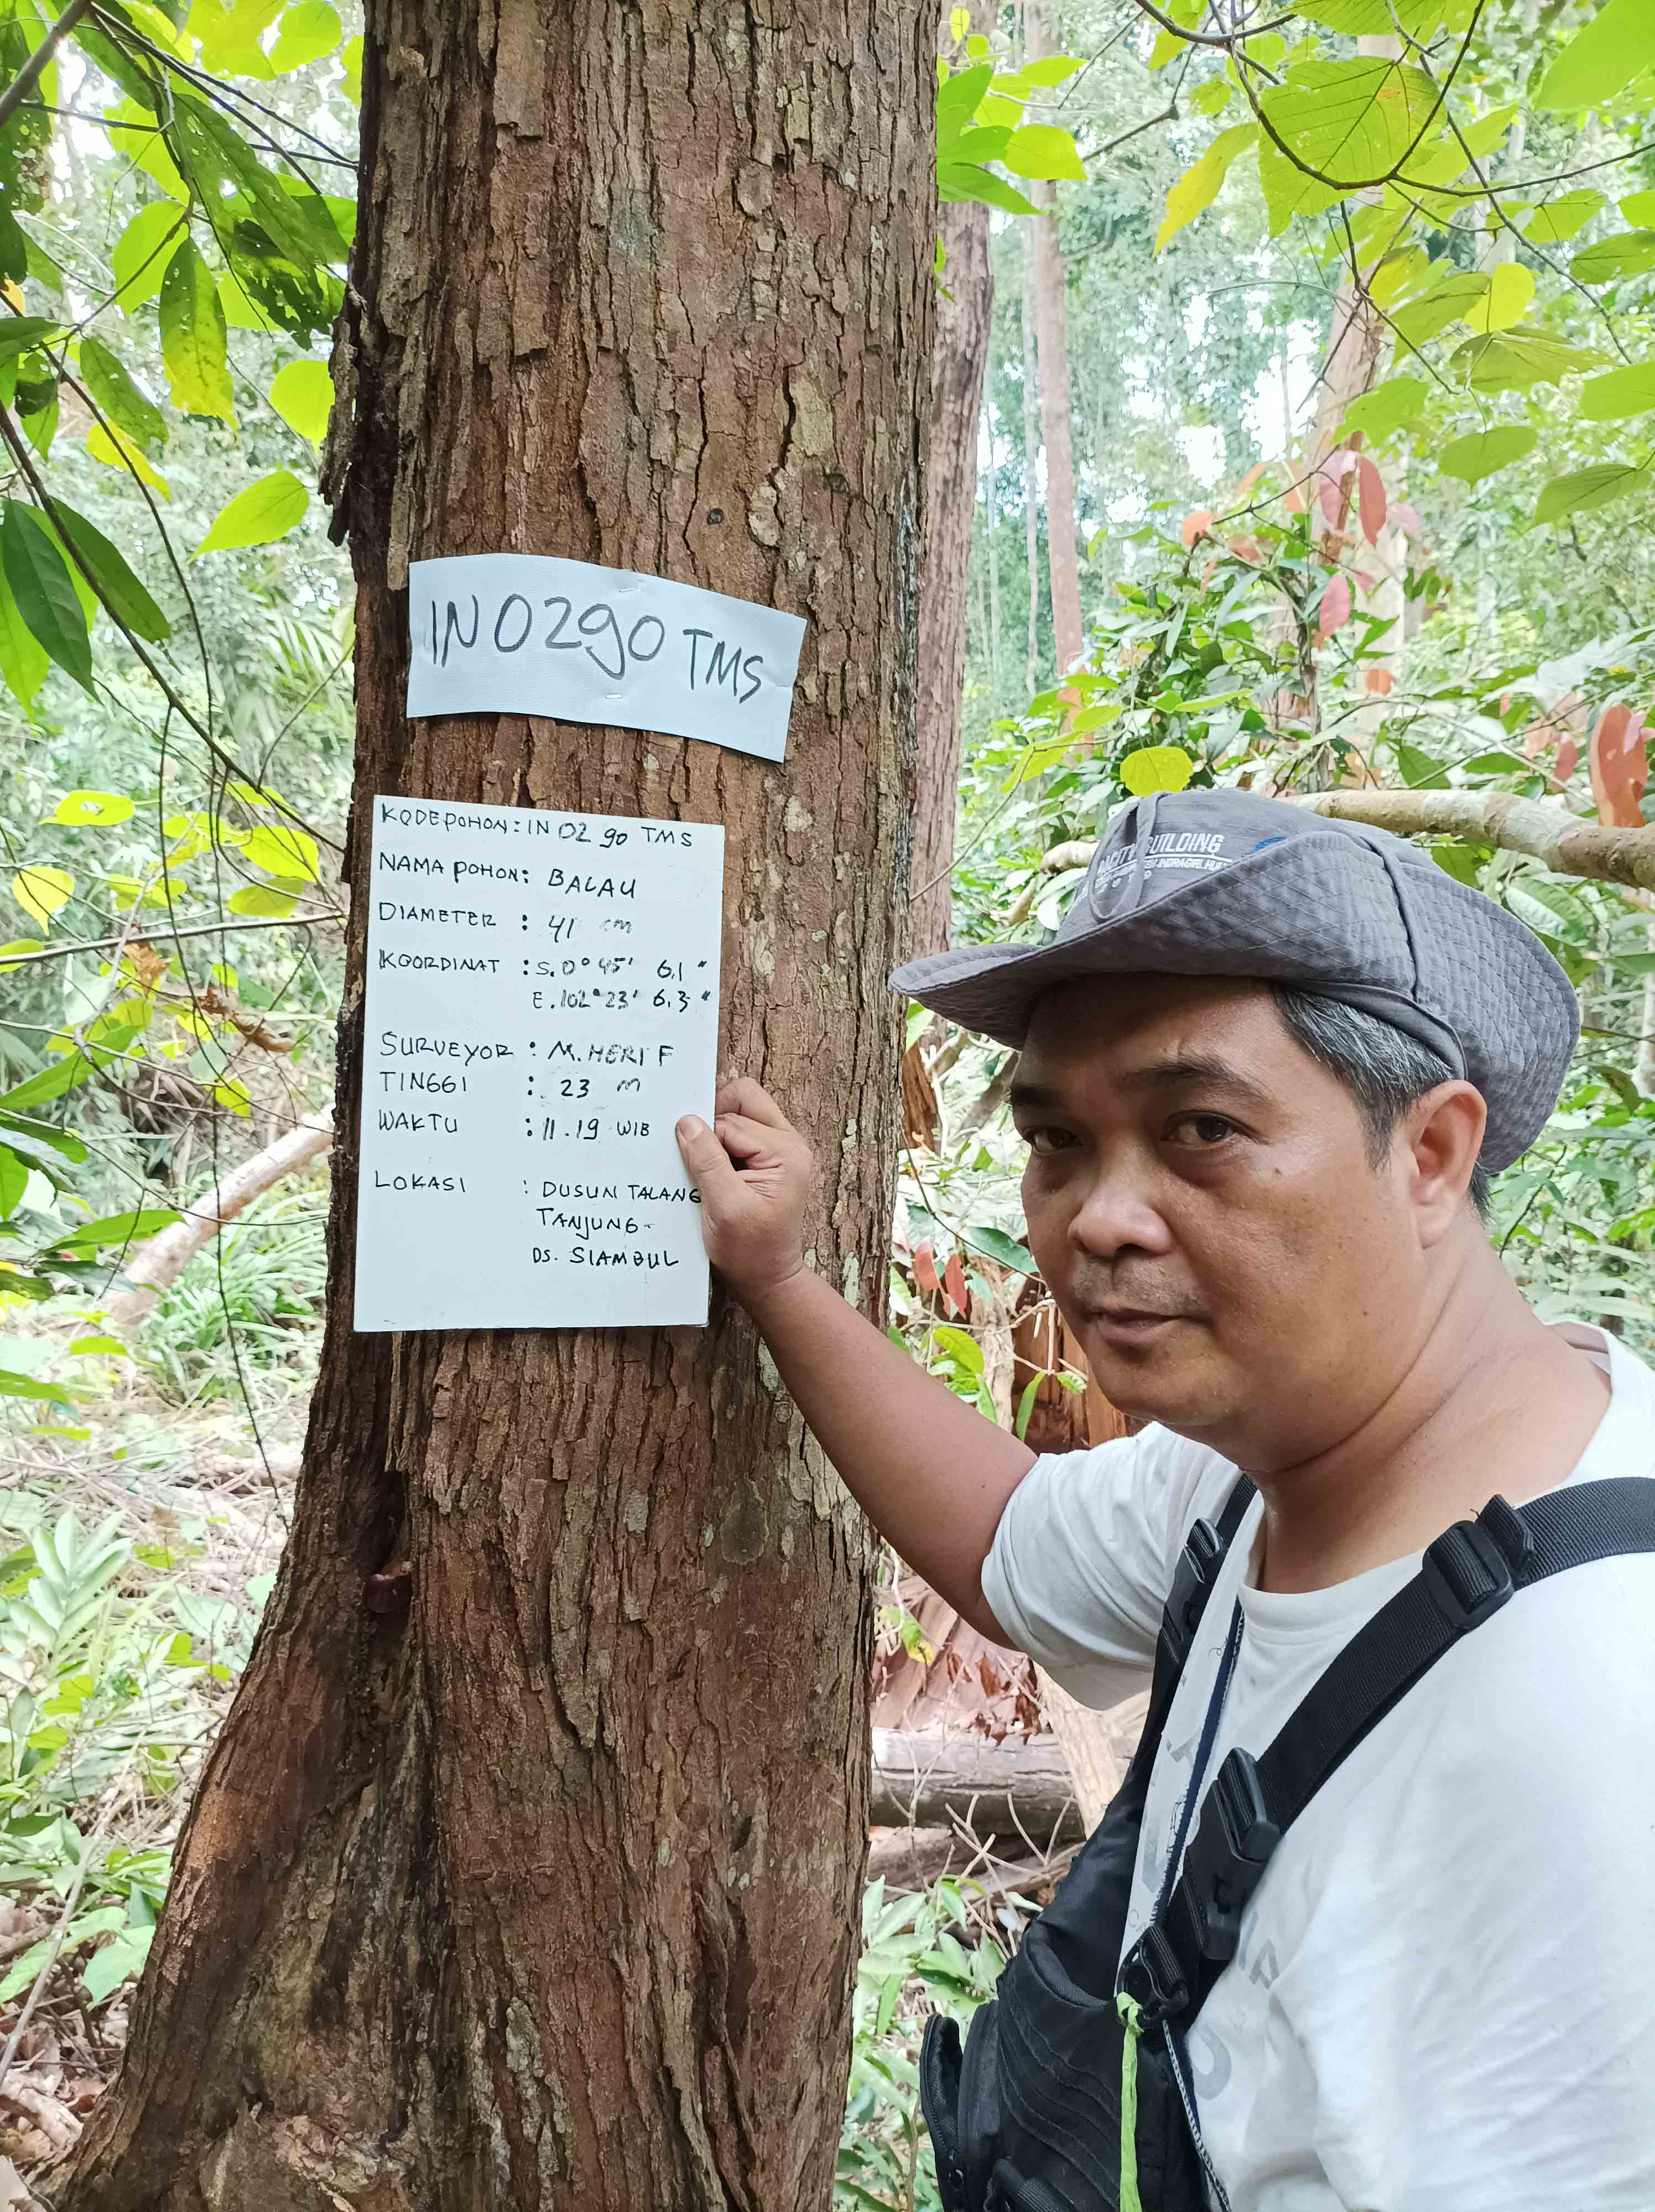 IN 0290 TMS
KODE POHON : IN 02 90 TMS
NAMA POHON : BALAU
DIAMETER : 41 cm
KOORDINAT : S. 0° 45' 6,1 "
E. 102° 23' 6,3 "
SURVEYOR : M. HERI F
TINGGI : 23 m
WAKTU : 11.19 WIB
LOKASI : DUSUN TALANG
TANJUNG
DS. SIAMBUL
BUILDING